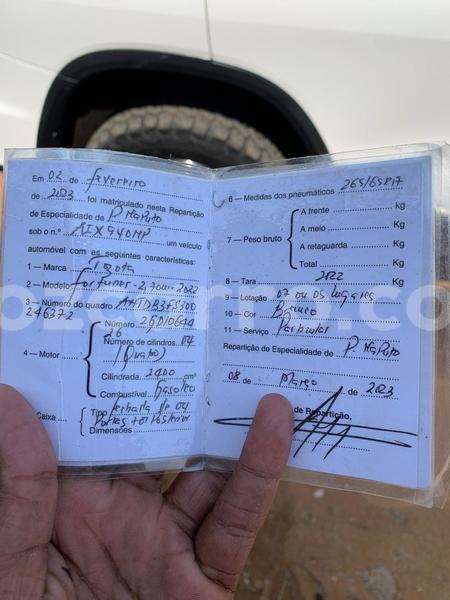 Em 02 de fevereiro
de 2023 foi matriculado nesta Repartição
de Especialidade de P. Maputo
sob o n.º AIX940MP um veículo
automóvel com as seguintes características:
1 – Marca Toyota
2 – Modelo Fortuner
3 – Número do quadro
246372
4 – Motor
Número
Número de cilindros 04
(Quatro)
Cilindrada 2400 cm³
Combustível Gasóleo
Caixa
Tipo fechada de 04
portas + 01 Posterior
Dimensões
6 – Medidas dos pneumáticos 265/65R17
7 – Peso bruto
A frente Kg
A meio Kg
A retaguarda Kg
Total Kg
8 – Tara Kg
9 – Lotação 07 ou 05 lugares
10 – Cor Branco
11 – Serviço Particular
Repartição de Especialidade de P. Maputo
08 de Março de 2023
de Repartição,